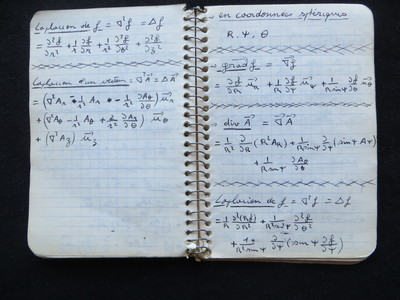 Laplacien de f = ∇²f = Δf
= ∂²f/∂r² + 1/r ∂f/∂r + 1/r² ∂²f/∂θ² + ∂²f/∂z²
Laplacien d'un vecteur = ∇²A⃗ = ΔA⃗
= (∇²Ar - 1/r² Ar - 2/r² ∂Aθ/∂θ) u⃗r
+ (∇²Aθ - 1/r² Aθ + 2/r² ∂Ar/∂θ) u⃗θ
+ (∇²Az) u⃗z
→ en coordonnées sphériques
R, Ψ, θ
→ grad f = ∇⃗f
= ∂f/∂R u⃗R + 1/R ∂f/∂Ψ u⃗Ψ + 1/(R sinΨ) ∂f/∂θ u⃗θ
→ div A⃗ = ∇⃗A⃗
= 1/R² ∂/∂R (R²AR) + 1/(R sinΨ) ∂/∂Ψ (sinΨ AΨ)
+ 1/(R sinΨ) ∂Aθ/∂θ
Laplacien de f = ∇²f = Δf
= 1/R ∂²(Rf)/∂R² + 1/(R² sin²Ψ) ∂²f/∂θ²
+ 1/(R² sinΨ) ∂/∂Ψ (sinΨ ∂f/∂Ψ)